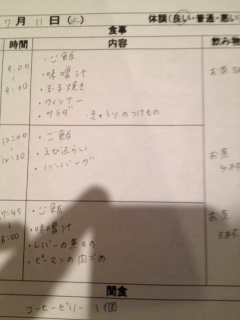 7月11日(火) 体調(良い・普通・悪い
食事
時間 内容 飲み物
・ご飯
・味噌汁
・玉子焼き
・ウィンナー
・サラダ きゅうりのつけもの
12:00
12:30
・ご飯
・えびふらい
・ハンバーグ
お茶
・ご飯
・味噌汁
・レバーの煮もの
・ピーマンの肉づめ
お茶
間食
コーヒーゼリー 1個